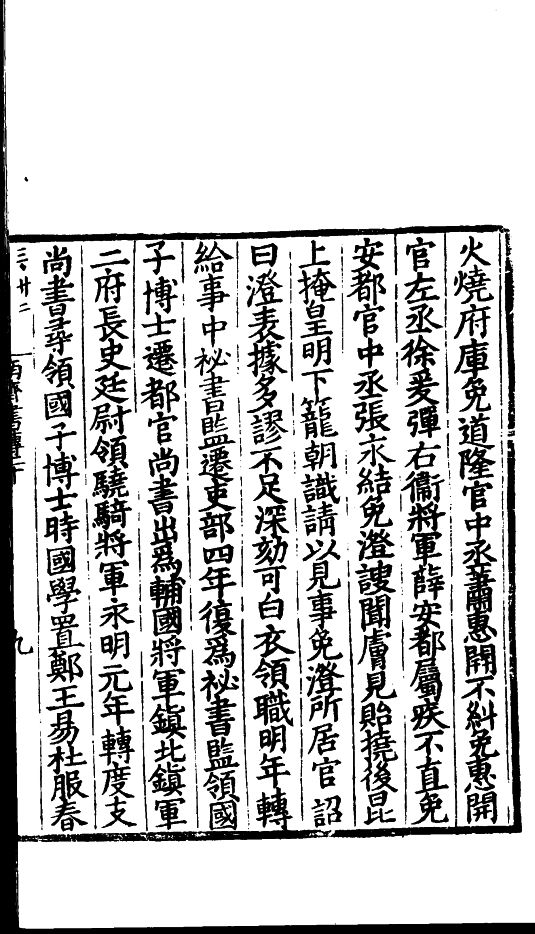 火燒府庫免道隆官中丞蕭惠開不糾免惠開
官左丞徐爰彈右衞將軍薛安都屬疾不直免
安都官中丞張永結免澄謏聞膚見貽撓後昆
上掩皇明下籠朝識請以見事免澄所居官詔
曰澄表據多謬不足深劾可白衣領職明年轉
給事中祕書監遷吏部四年復爲祕書監領國
子博士遷都官尚書出爲輔國將軍鎭北鎭軍
二府長史廷尉領驍騎將軍永明元年轉度支
尚書尋領國子博士時國學置鄭王易杜服春
南齊書傳二十
九